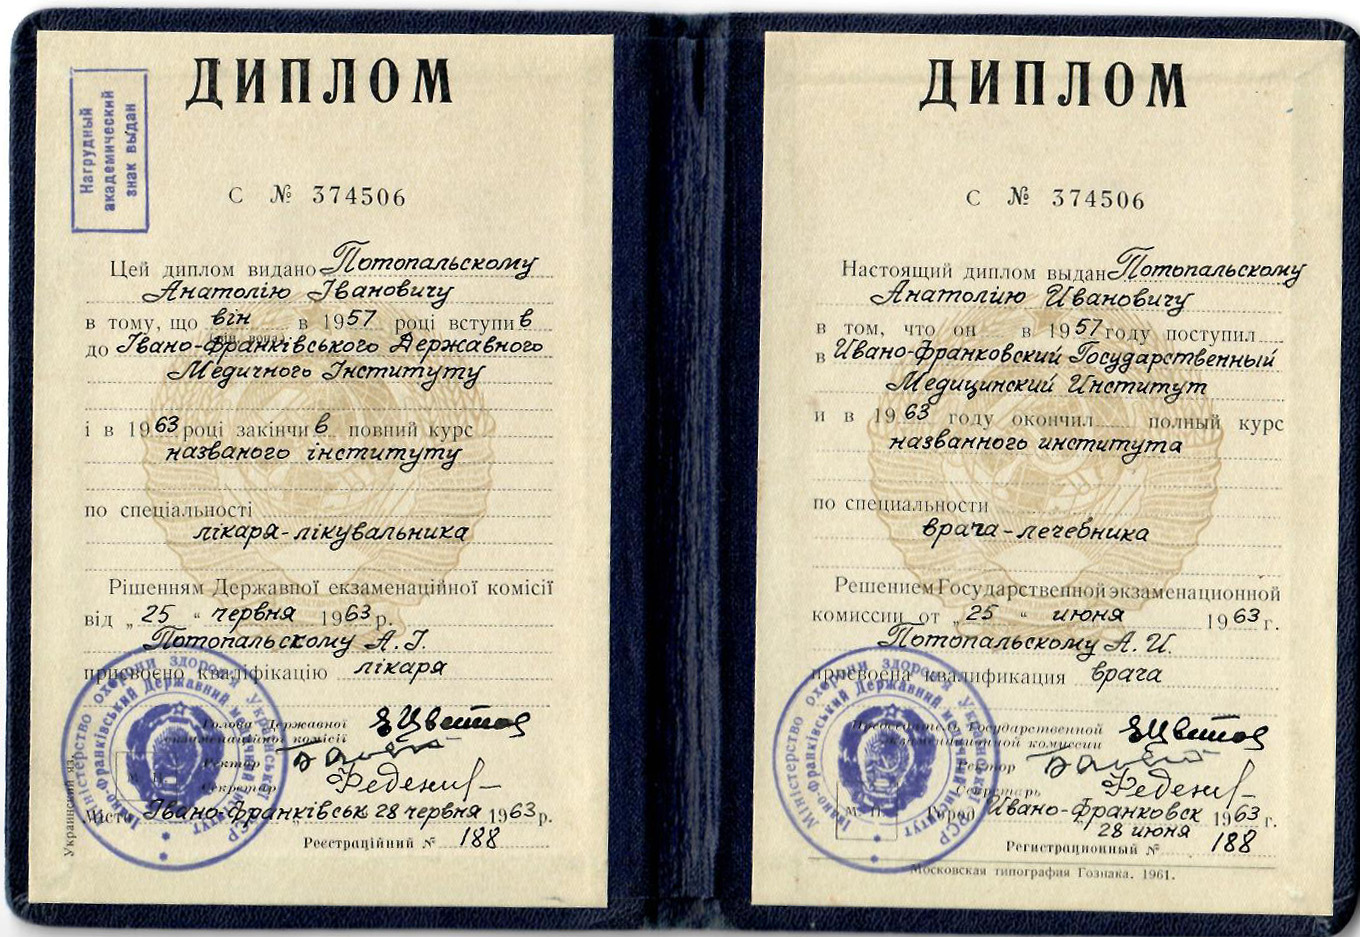 ДИПЛОМ
Нагрудный
академический
знак выдан
С № 374506
Цей диплом видано Потопальскому
Анатолію Івановичу
в тому, що він в 1957 році вступив
до Івано-Франківського Державного
Медичного Інституту
і в 1963 році закінчив повний курс
названого інституту
по спеціальності
лікаря-лікувальника
Рішенням Державної екзаменаційної комісії
від „25“ червня 1963 р.
Потопальскому А. І.
присвоено кваліфікацію лікаря
Голова Державної
екзаменаційної комісії
Ректор
Секретар
М. П.
Місто Івано-Франківськ 28 червня 1963 р.
Реєстраційний № 188
Украинский яз.
Міністерство охорони здоров'я Української РСР
Івано-Франківський Державний медичний інститут
ДИПЛОМ
С № 374506
Настоящий диплом выдан Потопальскому
Анатолию Ивановичу
в том, что он в 1957 году поступил
в Ивано-Франковский Государственный
Медицинский Институт
и в 1963 году окончил полный курс
названного института
по специальности
врача-лечебника
Решением Государственной экзаменационной
комиссии от „25“ июня 1963 г.
Потопальскому А. И.
присвоена квалификация врача
Председатель Государственной
экзаменационной комиссии
Ректор
Секретарь
М. П.
Город Ивано-Франковск 1963 г.
28 июня
Регистрационный № 188
Московская типография Гознака. 1961.
Міністерство охорони здоров'я Української РСР
Івано-Франківський Державний медичний інститут